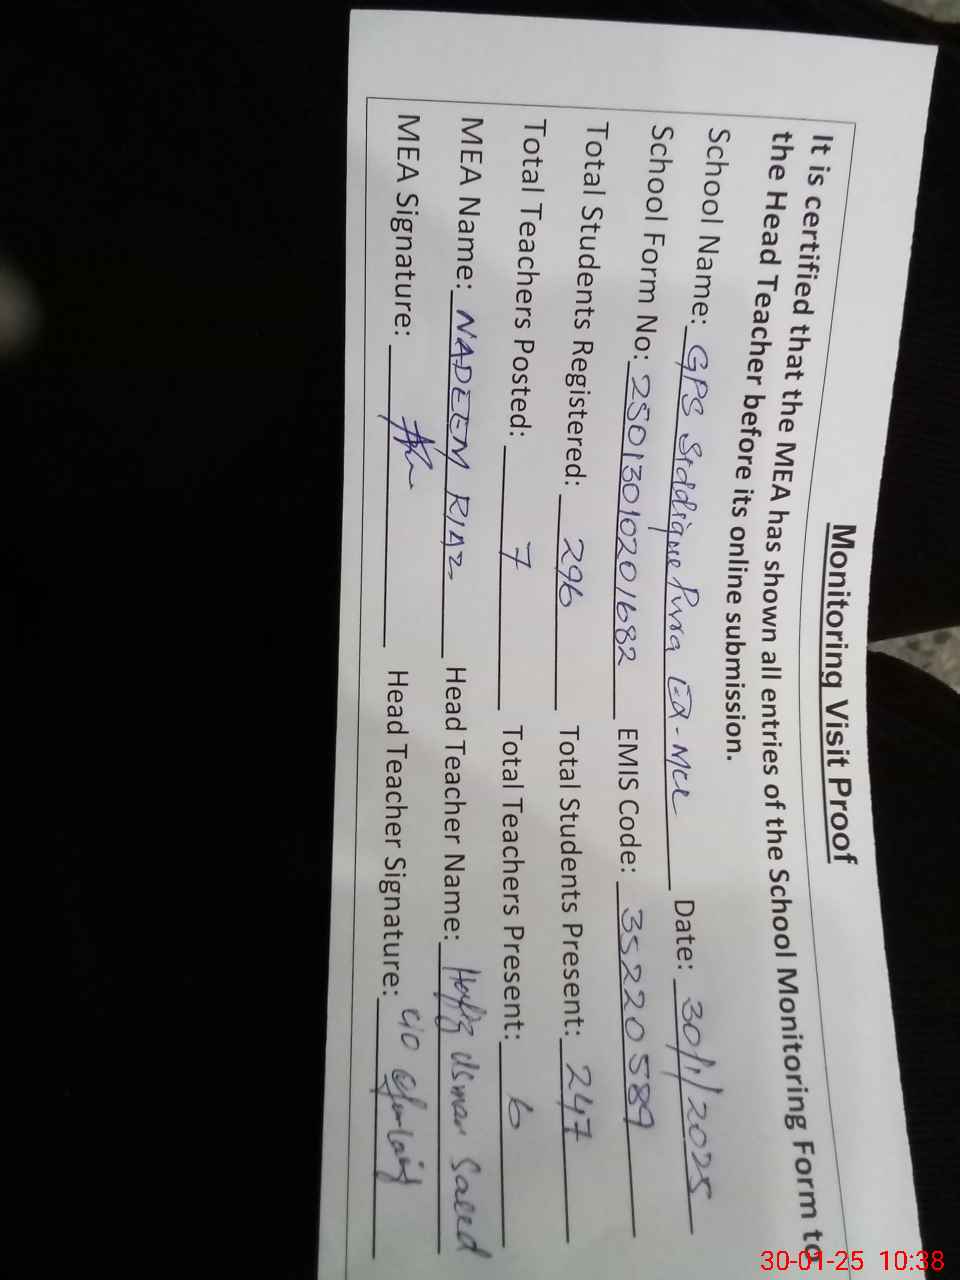 Monitoring Visit Proof
It is certified that the MEA has shown all entries of the School Monitoring Form to
the Head Teacher before its online submission.
School Name: GPS Siddique Pura Ed-Mcl Date: 30/1/2025
School Form No: 25013010201682 EMIS Code: 35220589
Total Students Registered: 296 Total Students Present: 247
Total Teachers Posted: 7 Total Teachers Present: 6
MEA Name: NADEEM RIAZ Head Teacher Name: Hafiz Usman Saeed
MEA Signature: Head Teacher Signature:
30-01-25 10:38